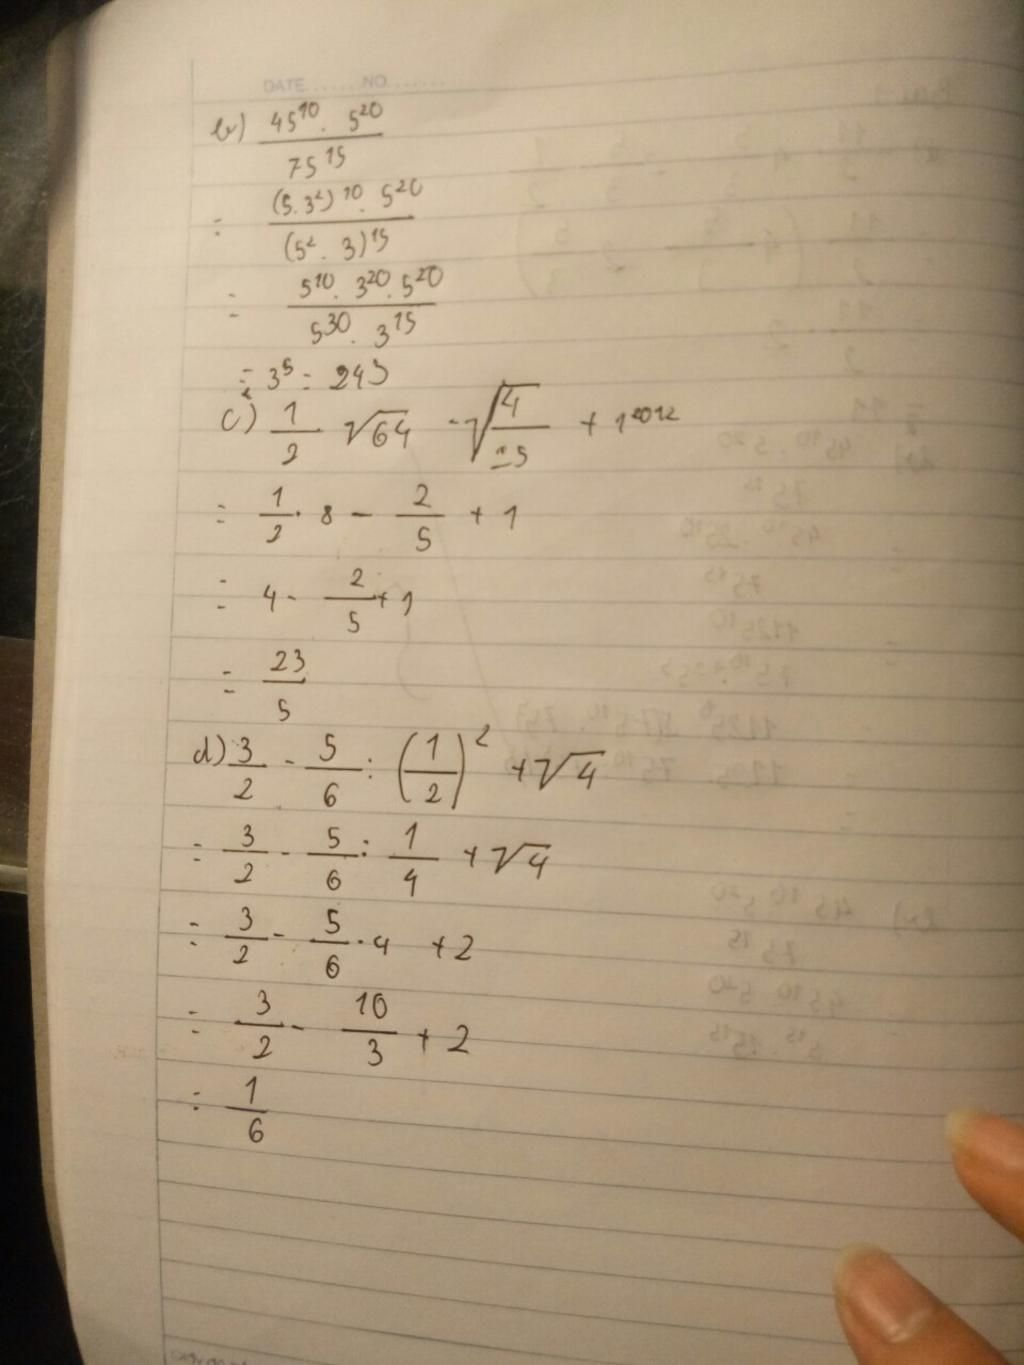 DATE.......NO.......
b) 45^10 . 5^20 / 75^15
= (5.3^2)^10 . 5^20 / (5^2 . 3)^15
= 5^10 . 3^20 . 5^20 / 5^30 . 3^15
= 3^5 = 243
c) 1/2 √64 - √(4/25) + 1^2012
= 1/2 . 8 - 2/5 + 1
= 4 - 2/5 + 1
= 23/5
d) 3/2 - 5/6 : (1/2)^2 + √4
= 3/2 - 5/6 : 1/4 + √4
= 3/2 - 5/6 . 4 + 2
= 3/2 - 10/3 + 2
= 1/6